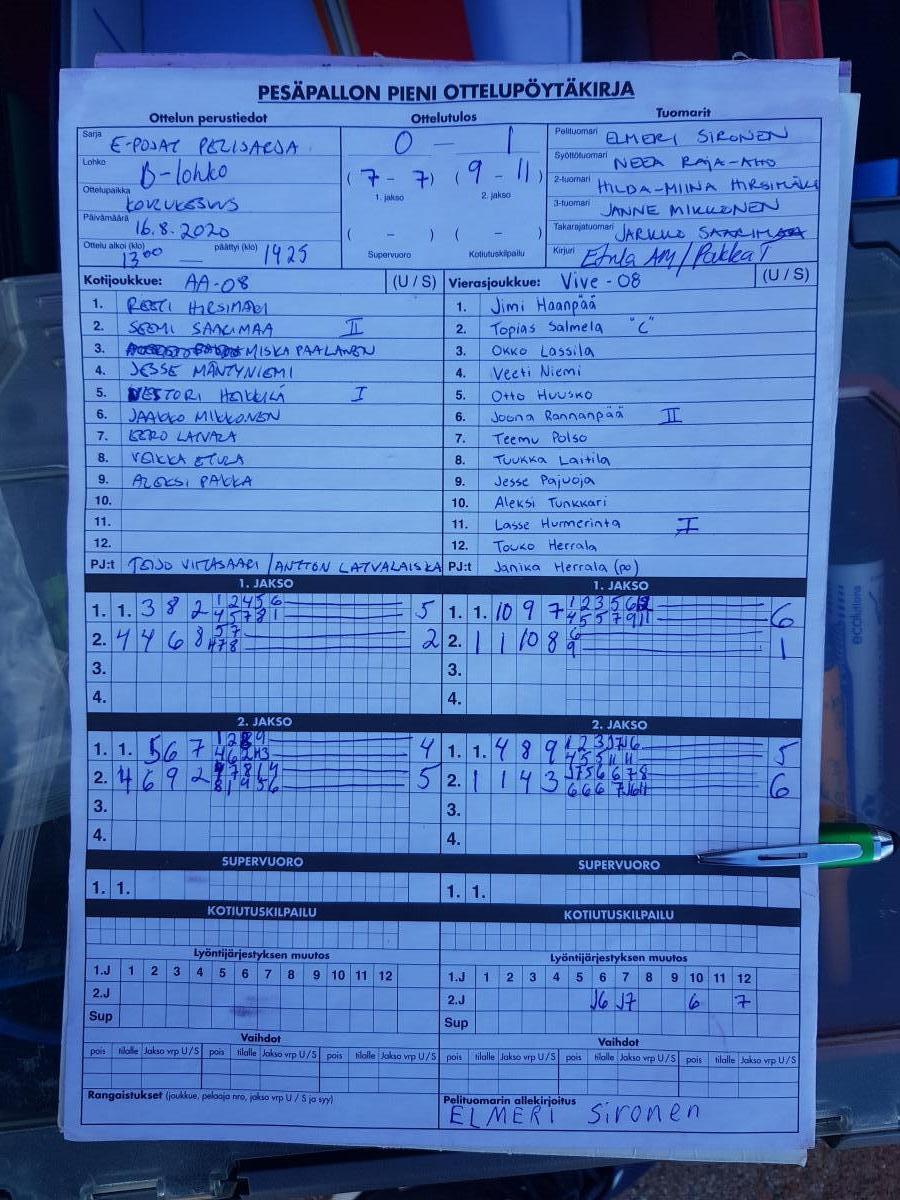 PESÄPALLON PIENI OTTELUPÖYTÄKIRJA
Ottelun perustiedot
Sarja E-POJAT PELISARJA
Lohko B-lohko
Ottelupaikka
Päivämäärä 16.8.2020
Ottelu alkoi (klo) 13 00 — päättyi (klo) 1425
Ottelutulos
0 — 1
(7 - 7) (9 - 11)
1. jakso 2. jakso
( - ) ( - )
Supervuoro Kotiutuskilpailu
Tuomarit
Pelituomari ELMERI SIRONEN
Syöttötuomari NEEA RAJA-AHO
2-tuomari HILDA-MIINA HIRSIMÄKI
3-tuomari JANNE MIKKONEN
Takarajatuomari JARKKO SAARIMAA
Kirjuri Etula AM / Pakka T
Kotijoukkue: AA-08 (U / S)
1. HIRSIMÄKI
2. SEEMI SAARIMAA II
3. MISKA PAALANEN
4. JESSE MÄNTYNIEMI
5. NESTORI HEIKKILÄ I
6. JAAKKO MIKKONEN
7. EERO LATVALA
8. VEIKKA ETULA
9. ALEKSI PAKKA
10.
11.
12.
PJ:t TOIJO VIITASAARI / ANTTON LATVALAISKA
Vierasjoukkue: Vive-08 (U / S)
1. Jimi Haanpää
2. Topias Salmela "C"
3. Okko Lassila
4. Veeti Niemi
5. Otto Huusko
6. Joona Rannanpää II
7. Teemu Polso
8. Tuukka Laitila
9. Jesse Pajuoja
10. Aleksi Tunkkari
11. Lasse Hurmerinta I
12. Touko Herrala
PJ:t Janika Herrala (po)
1. JAKSO
1. 1. 3 8 2 5
2. 4 4 6 8 2
3.
4.
1. JAKSO
1. 1. 10 9 7 6
2. 1 1 10 8 6 9 1
3.
4.
2. JAKSO
1. 1. 5 6 7 4
2. 4 6 9 2 5
3.
4.
2. JAKSO
1. 1. 4 8 9 5
2. 1 1 4 3 6
3.
4.
SUPERVUORO
1. 1.
SUPERVUORO
1. 1.
KOTIUTUSKILPAILU
KOTIUTUSKILPAILU
Lyöntijärjestyksen muutos
1.J 1 2 3 4 5 6 7 8 9 10 11 12
2.J
Sup
Lyöntijärjestyksen muutos
1.J 1 2 3 4 5 6 7 8 9 10 11 12
2.J J6 J7 6 7
Sup
Vaihdot
pois tilalle Jakso vrp U/S pois tilalle Jakso vrp U/S pois tilalle Jakso vrp U/S
Vaihdot
pois tilalle Jakso vrp U/S pois tilalle Jakso vrp U/S pois tilalle Jakso vrp U/S
Rangaistukset (joukkue, pelaaja nro, jakso vrp U / S ja syy)
Pelituomarin allekirjoitus
ELMERI Sironen